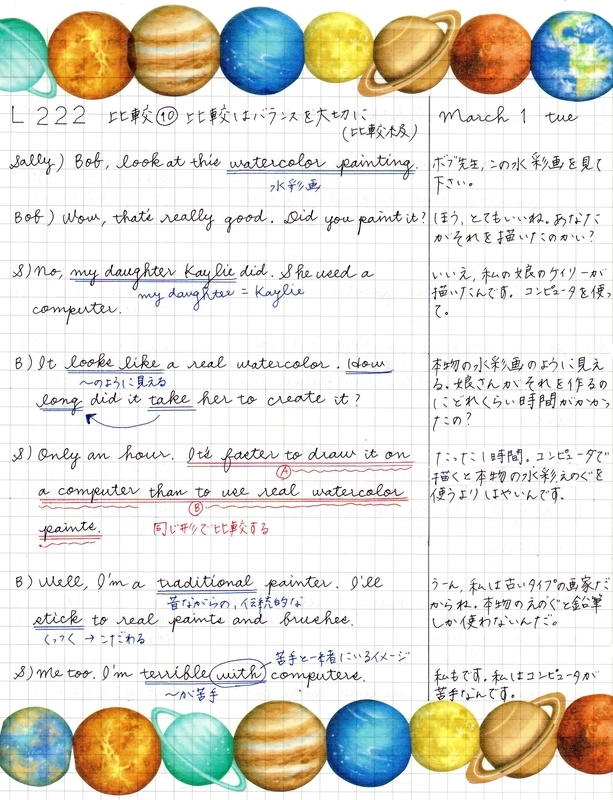 L 222 比較⑩ 比較はバランスを大切に
(比較級)
March 1 tue
Sally) Bob, look at this watercolor painting.
水彩画
ボブ先生、この水彩画を見て
下さい。
Bob) Wow, that's really good. Did you paint it?
ほう、とてもいいね。あなた
がそれを描いたのかい?
S) No, my daughter Kaylie did. She used a
my daughter = Kaylie
computer.
いいえ、私の娘のケイリーが
描いたんです。コンピュータを使っ
て。
B) It looks like a real watercolor. How
〜のように見える
long did it take her to create it?
本物の水彩画のように見え
る。娘さんがそれを作るの
にどれくらい時間がかかっ
たの?
S) Only an hour. It's faster to draw it on
Ⓐ
a computer than to use real watercolor
Ⓑ
paints.
同じ形で比較する
たった1時間。コンピュータで
描くと本物の水彩えのぐを
使うよりはやいんです。
B) Well, I'm a traditional painter. I'll
昔ながらの、伝統的な
stick to real paints and brushes.
くっつく → こだわる
うーん、私は古いタイプの画家だ
からね。本物のえのぐと鉛筆
しか使わないんだ。
S) Me too. I'm terrible with computers.
苦手と一緒にいるイメージ
〜が苦手
私もです。私はコンピュータが
苦手なんです。